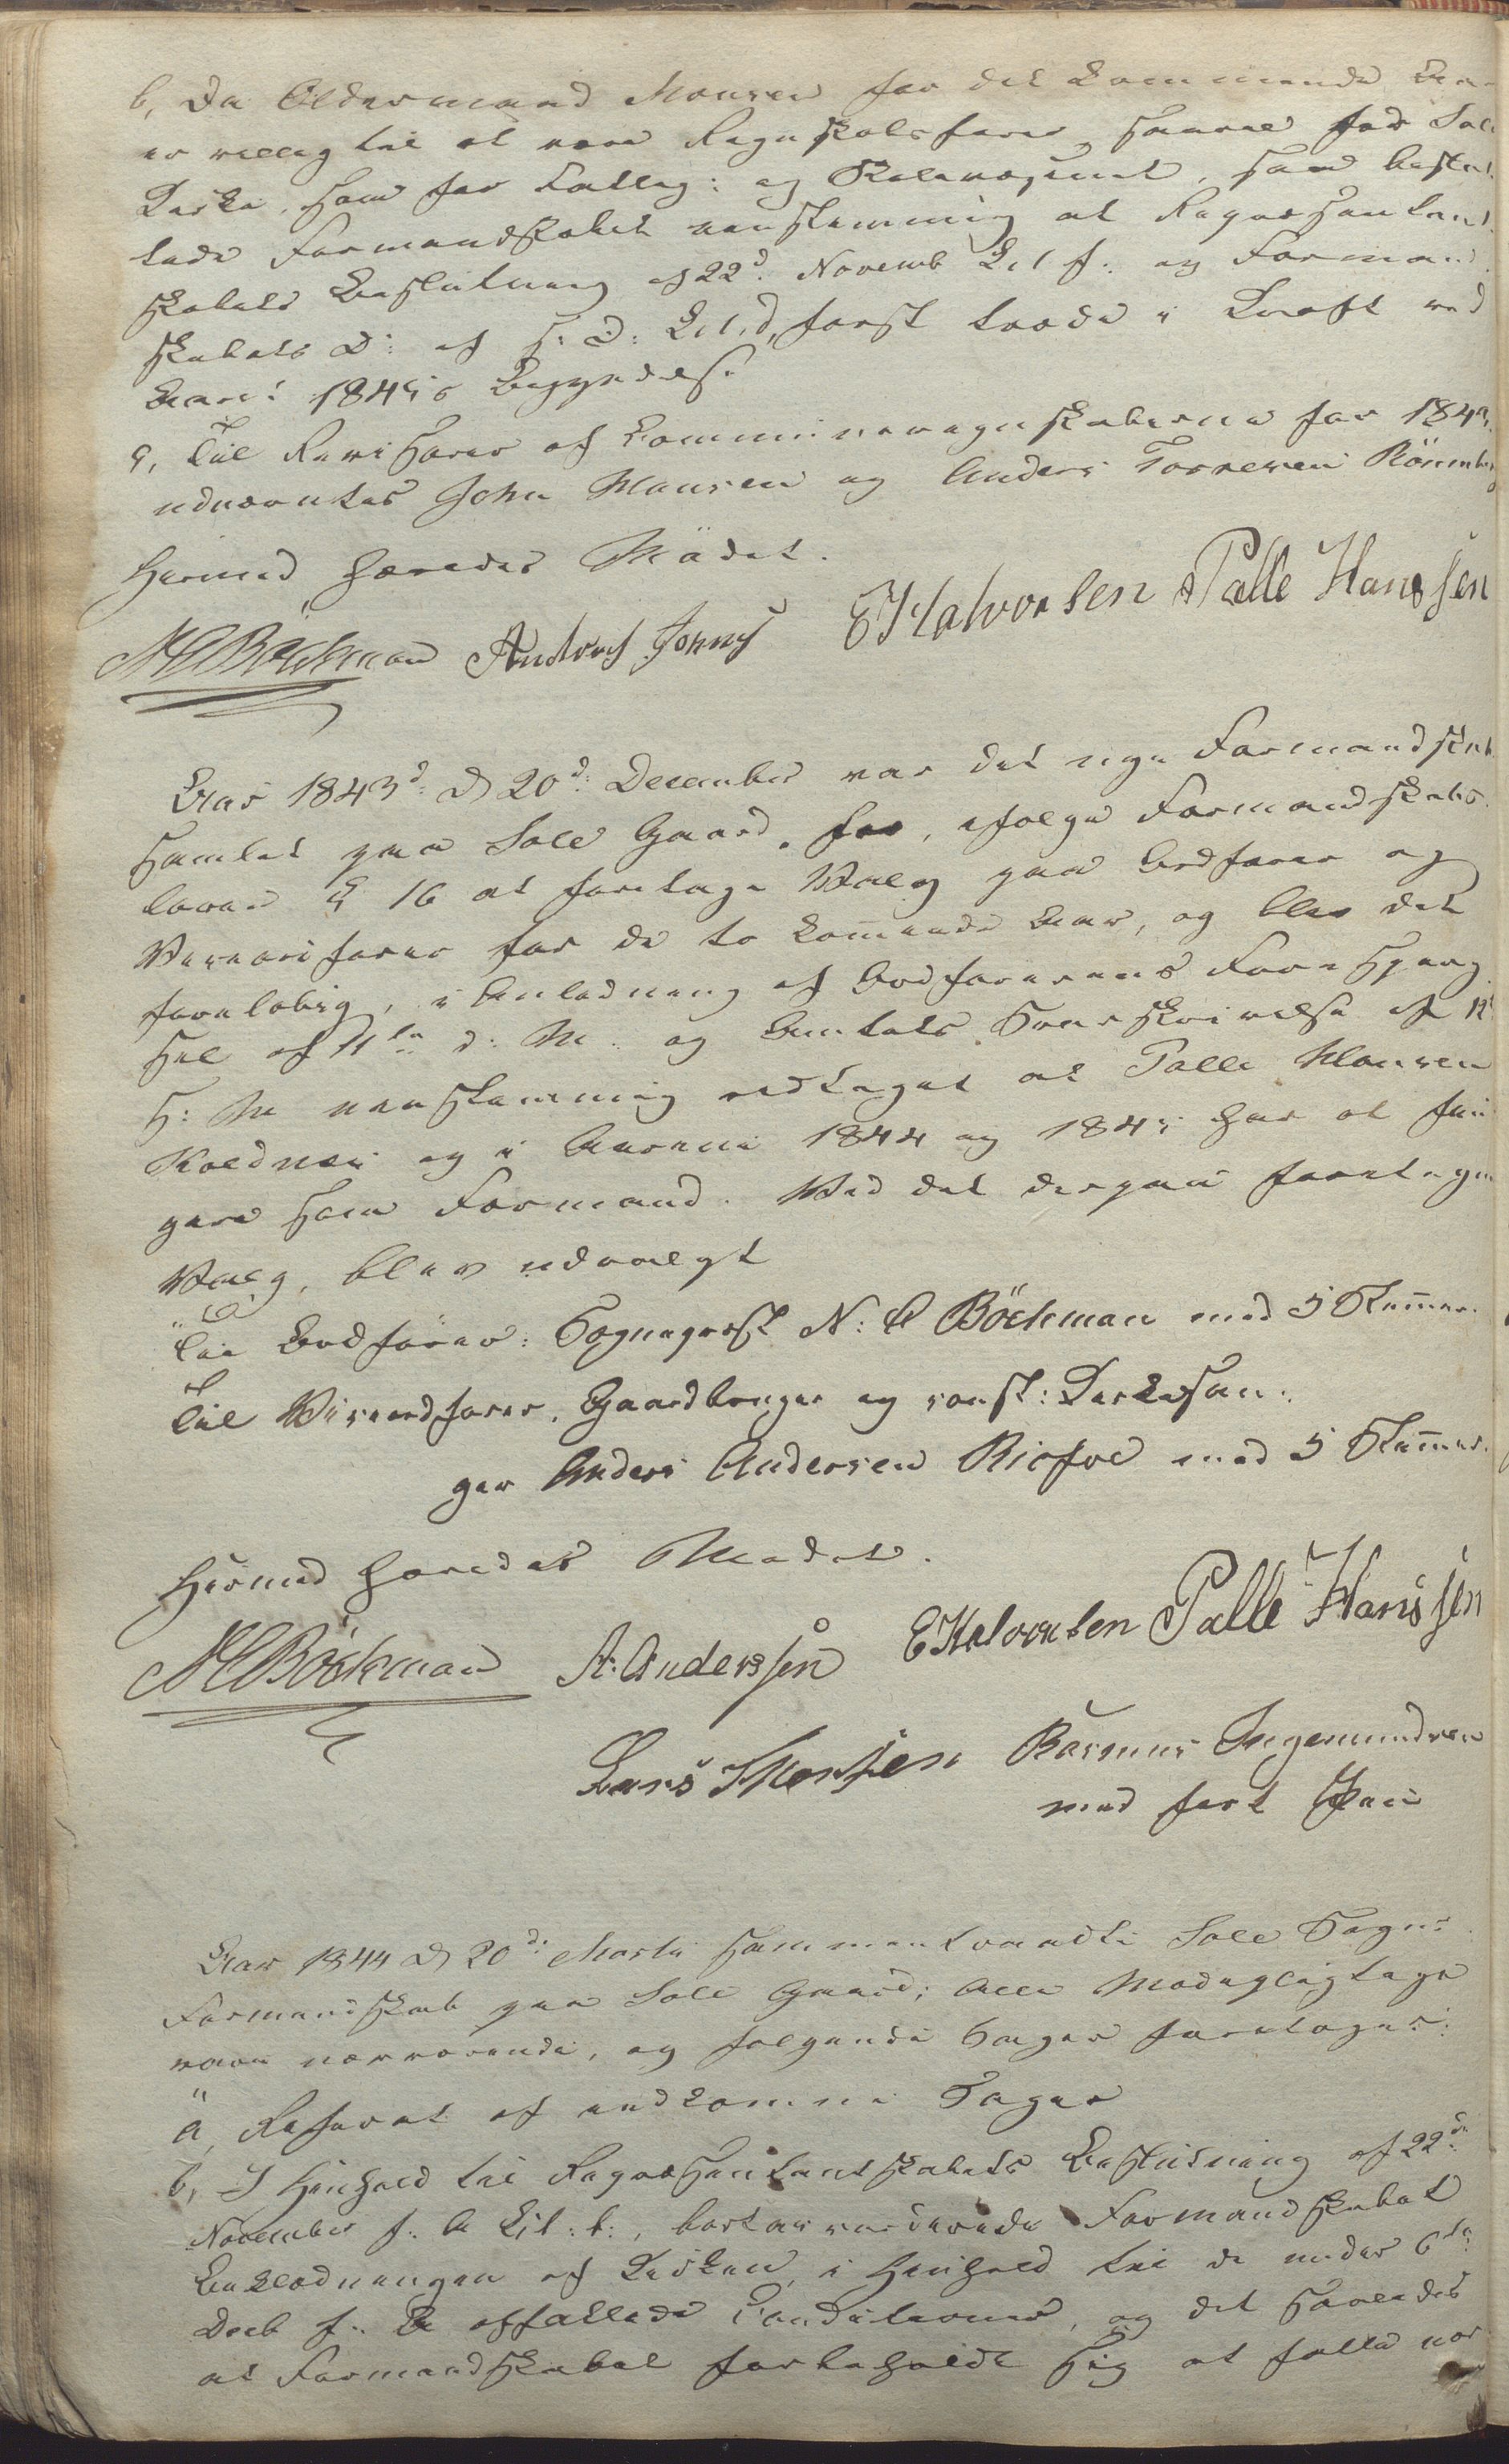 b, Da Oldermand Monsen for det kommende Aar
er villig til at være Regnskabsfører saavel for Sole
Kirke, som for Fattig: og Skolevæsenet, saa beslut
tede Formandskabet eenstemmig at Repræsentant
skabets Beslutning af 22d Novemb Lit f: og Formand
skabets D: af s: D: Lit. d, først træde i Kraft ved
Aaret 1845s Begyndelse
c, Til Revisorer af Communeregnskaberne for 1843
udnævntes John Monsen og Anders Torresen Rönneberg
Hermed hævedes Mödet.
N C Böckman Andreas Jonny E Halvorsen Palle Hanssen
Aar 1843 d: D 20d: December var det nye Formandskab
samlet paa Sole Gaard, for, ifølge Formandskabs
loven § 16 at foretage Valg paa Ordfører og
Viceordfører for de to kommende Aar, og blev det
foreløbig, i Anledning af Ordførerens Forespørg
sel af 11te d: M: og Amtets Svarskrivelse af 12
s: M eenstemmig vedtaget at Palle Hansen
Koldnæs og i Aarene 1844 og 1845 har at fun
gere som Formand. Ved det derpaa foretagne
Valg, blev udvalgt
Til Ordfører: Sogneprest N: C Böckman med 5 Stemmer.
Til Viceordfører, Gaardbruger og const: Kirkesan:
ger Anders Andersen Risfoe med 5 Stemmer.
Hermed hævedes Mødet.
N C Böckman A. Anderssen E Halvorsen Palle Hanssen
Lars Mortsen Rasmus Ingemundsen
med ført Pen
Aar 1844 D 20d: Marts sammentraadte Sole Sogns
Formandskab paa Sole Gaard; alle Mødepligtige
vare nærværende, og følgende Sager foretoges:
a, Referat af indkomne Sager
b, I Henhold til Repræsentantskabets Beslutning af 22d:
November f: A Lit: b:, bortaccorderede Formandskabet
Beklædningen af Kirken, i Henhold til de under 6te
Decb f: A opsatte Conditioner, og det saaledes
at Formandskabet forbeholdt sig at fatte nær